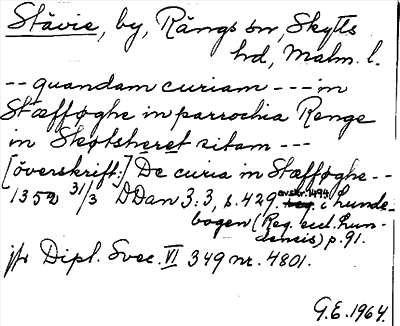 Stävie, by, Rängs sn, Skytts
hd, Malm. l.
-- quandam curiam --- in
Stæfføghe in parrochia Renge
in Skøtsheret sitam ---
[överskrift:] De curia in Stæfføghe --
1352 31/3 DDan 3:3, s. 429. avskr. 1494 i Lunde-
bogen (Reg. eccl. Lun-
densis) p. 91.
jfr Dipl. Svec. VI 349 nr. 4801.
G.E. 1964.